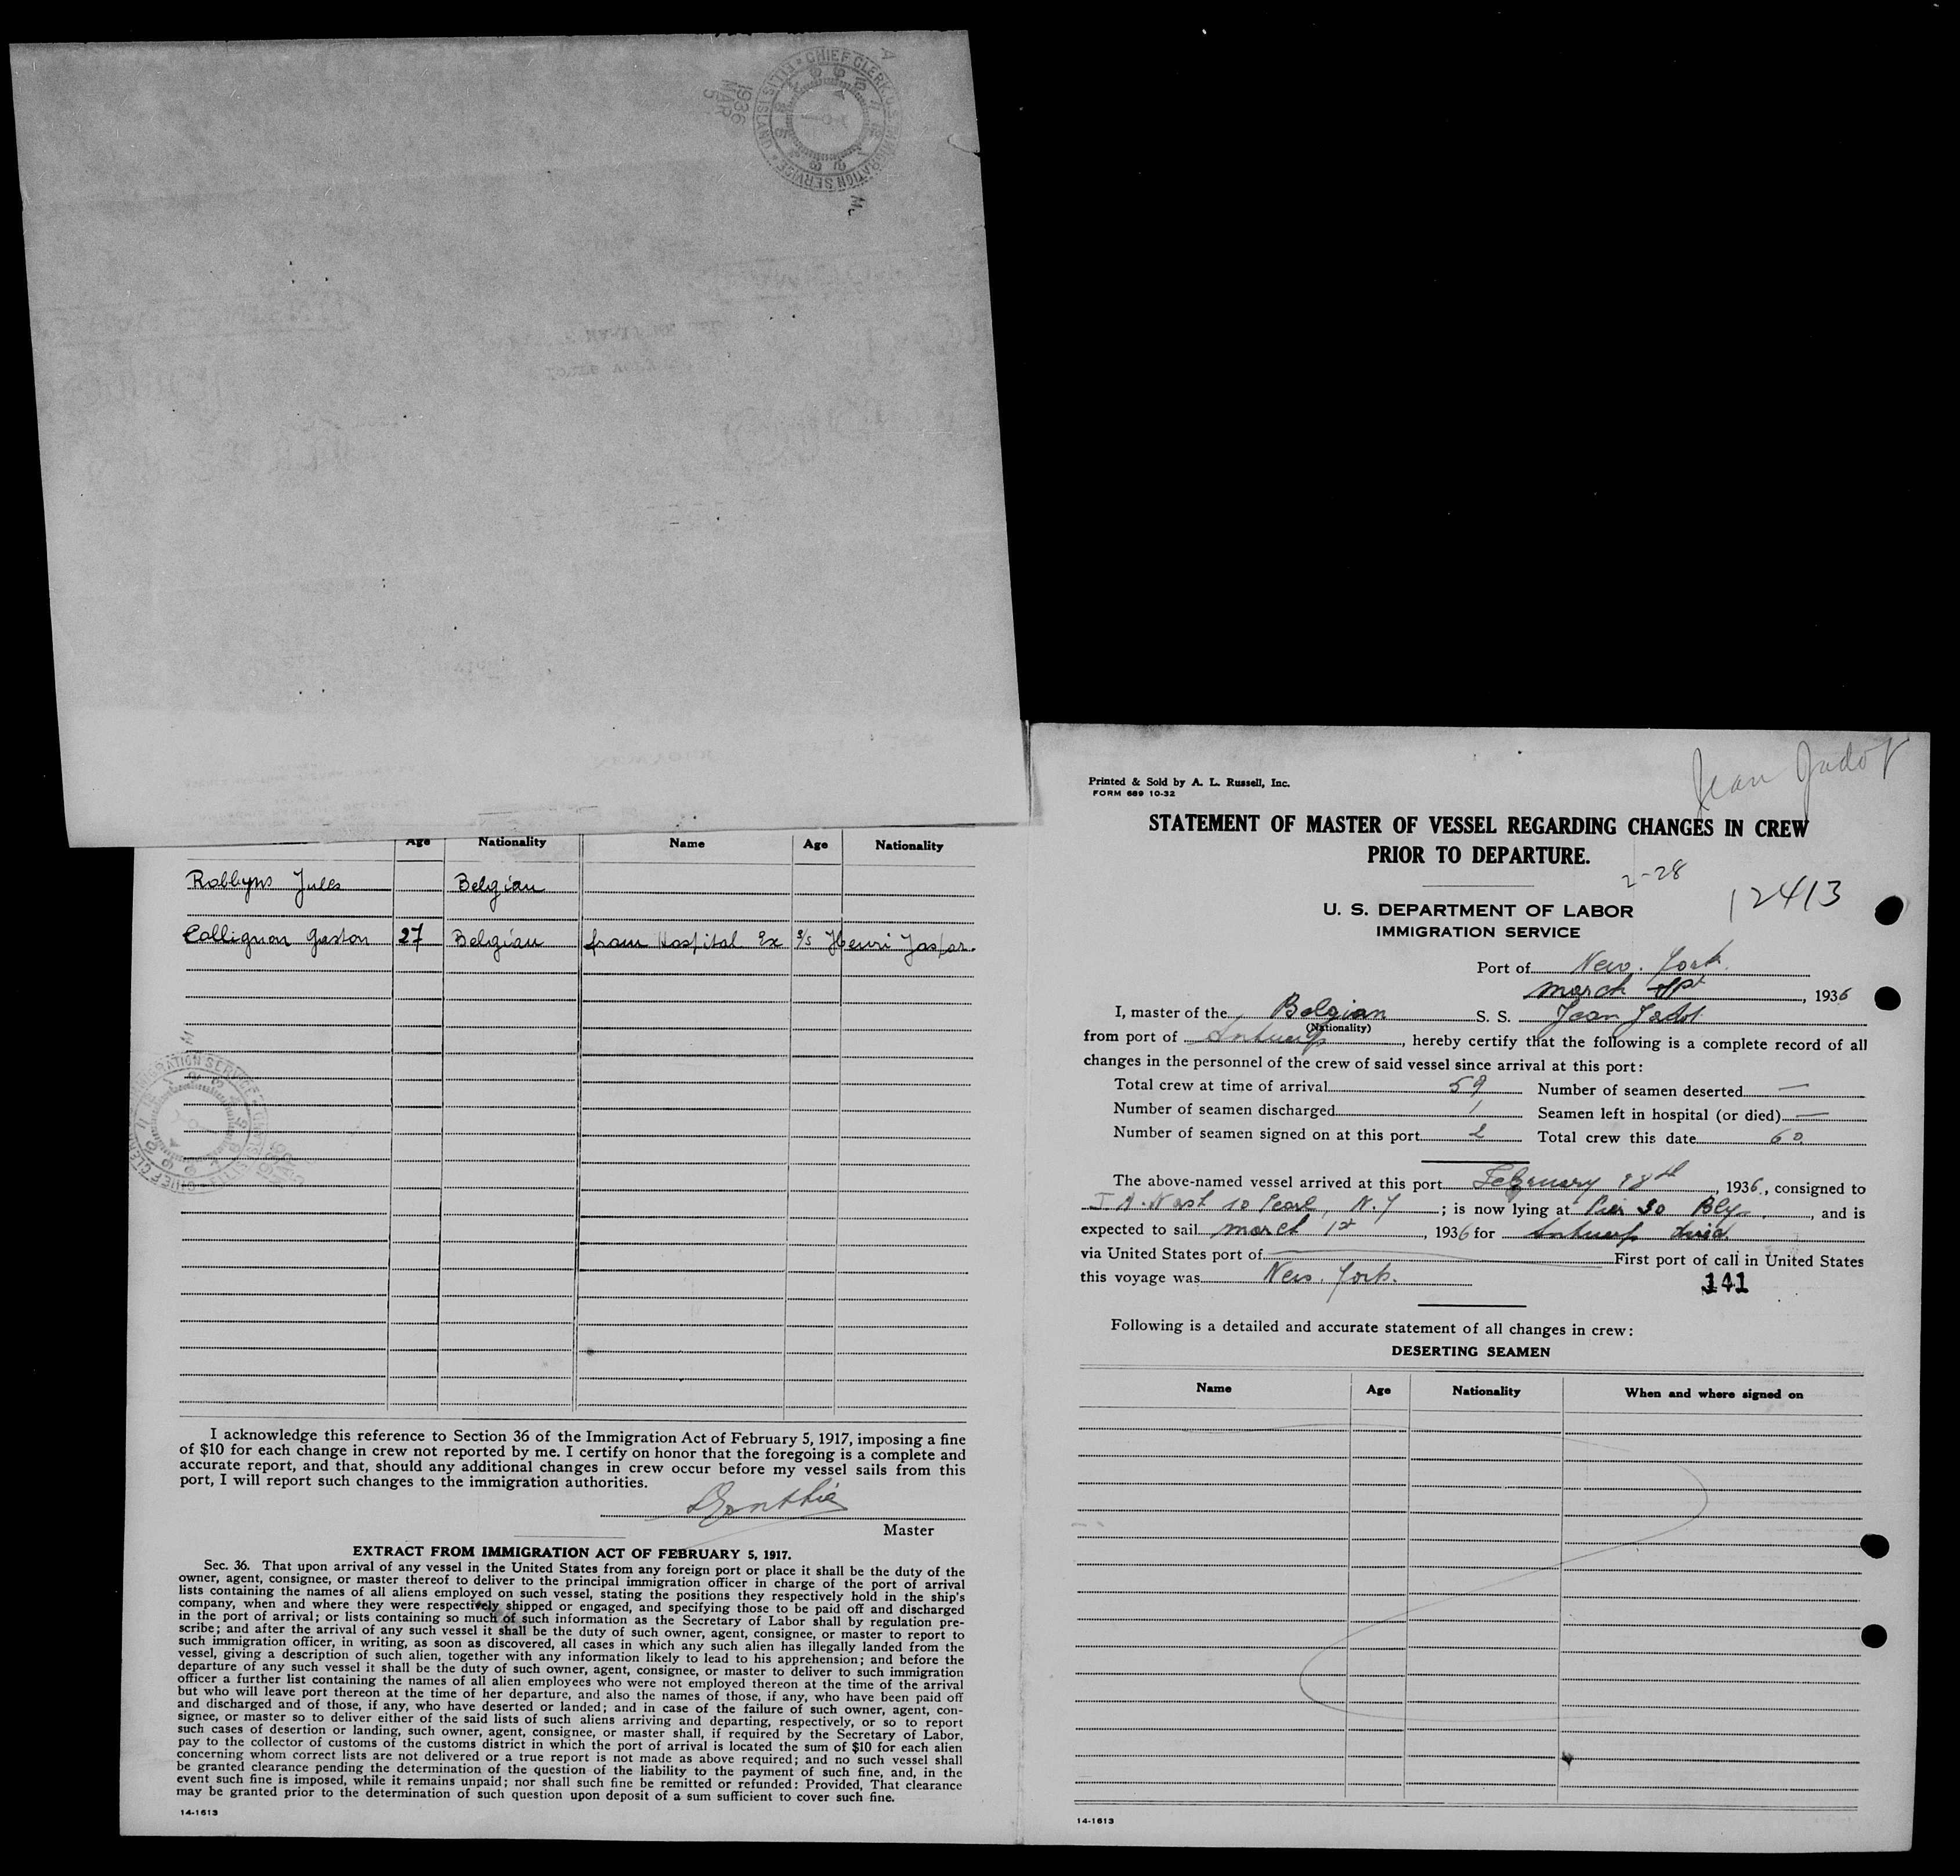 CHIEF CLERK U.S. IMMIGRATION SERVICE ELLIS ISLAND
1936
MAR
5
Age Nationality Name Age Nationality
Robbyns Jules Belgian
Collignon Gaston 27 Belgian from Hospital Ex S/S Henri Jaspar.
I acknowledge this reference to Section 36 of the Immigration Act of February 5, 1917, imposing a fine
of $10 for each change in crew not reported by me. I certify on honor that the foregoing is a complete and
accurate report, and that, should any additional changes in crew occur before my vessel sails from this
port, I will report such changes to the immigration authorities.
Master
EXTRACT FROM IMMIGRATION ACT OF FEBRUARY 5, 1917.
Sec. 36. That upon arrival of any vessel in the United States from any foreign port or place it shall be the duty of the
owner, agent, consignee, or master thereof to deliver to the principal immigration officer in charge of the port of arrival
lists containing the names of all aliens employed on such vessel, stating the positions they respectively hold in the ship's
company, when and where they were respectively shipped or engaged, and specifying those to be paid off and discharged
in the port of arrival; or lists containing so much of such information as the Secretary of Labor shall by regulation pre-
scribe; and after the arrival of any such vessel it shall be the duty of such owner, agent, consignee, or master to report to
such immigration officer, in writing, as soon as discovered, all cases in which any such alien has illegally landed from the
vessel, giving a description of such alien, together with any information likely to lead to his apprehension; and before the
departure of any such vessel it shall be the duty of such owner, agent, consignee, or master to deliver to such immigration
officer a further list containing the names of all alien employees who were not employed thereon at the time of the arrival
but who will leave port thereon at the time of her departure, and also the names of those, if any, who have been paid off
and discharged and of those, if any, who have deserted or landed; and in case of the failure of such owner, agent, con-
signee, or master so to deliver either of the said lists of such aliens arriving and departing, respectively, or so to report
such cases of desertion or landing, such owner, agent, consignee, or master shall, if required by the Secretary of Labor,
pay to the collector of customs of the customs district in which the port of arrival is located the sum of $10 for each alien
concerning whom correct lists are not delivered or a true report is not made as above required; and no such vessel shall
be granted clearance pending the determination of the question of the liability to the payment of such fine, and, in the
event such fine is imposed, while it remains unpaid; nor shall such fine be remitted or refunded: Provided, That clearance
may be granted prior to the determination of such question upon deposit of a sum sufficient to cover such fine.
14-1613
Jean Jadot
Printed & Sold by A. L. Russell, Inc.
FORM 689 10-32
STATEMENT OF MASTER OF VESSEL REGARDING CHANGES IN CREW
PRIOR TO DEPARTURE.
2-28
12413
U. S. DEPARTMENT OF LABOR
IMMIGRATION SERVICE
Port of New. York
March 1st, 1936
I, master of the Belgian S. S. Jean Jadot
(Nationality)
from port of Antwerp, hereby certify that the following is a complete record of all
changes in the personnel of the crew of said vessel since arrival at this port:
Total crew at time of arrival 59 Number of seamen deserted —
Number of seamen discharged 1 Seamen left in hospital (or died) —
Number of seamen signed on at this port 2 Total crew this date 60
The above-named vessel arrived at this port February 28th, 1936, consigned to
10 Pearl, N.Y; is now lying at Pier 30 Bly, and is
expected to sail March 1st, 1936 for Antwerp
via United States port of — First port of call in United States
this voyage was New. York.
141
Following is a detailed and accurate statement of all changes in crew:
DESERTING SEAMEN
Name Age Nationality When and where signed on
14-1613